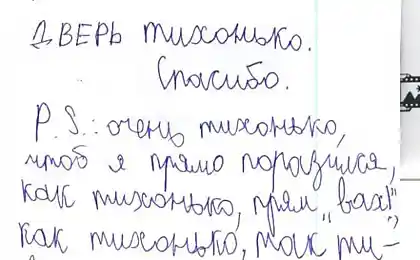 ДВЕРЬ тихонько.
Спасибо.
P.S.: очень тихонько,
чтоб я прямо поразился,
как тихонько, прям "вах!"
как тихонько, так ти-